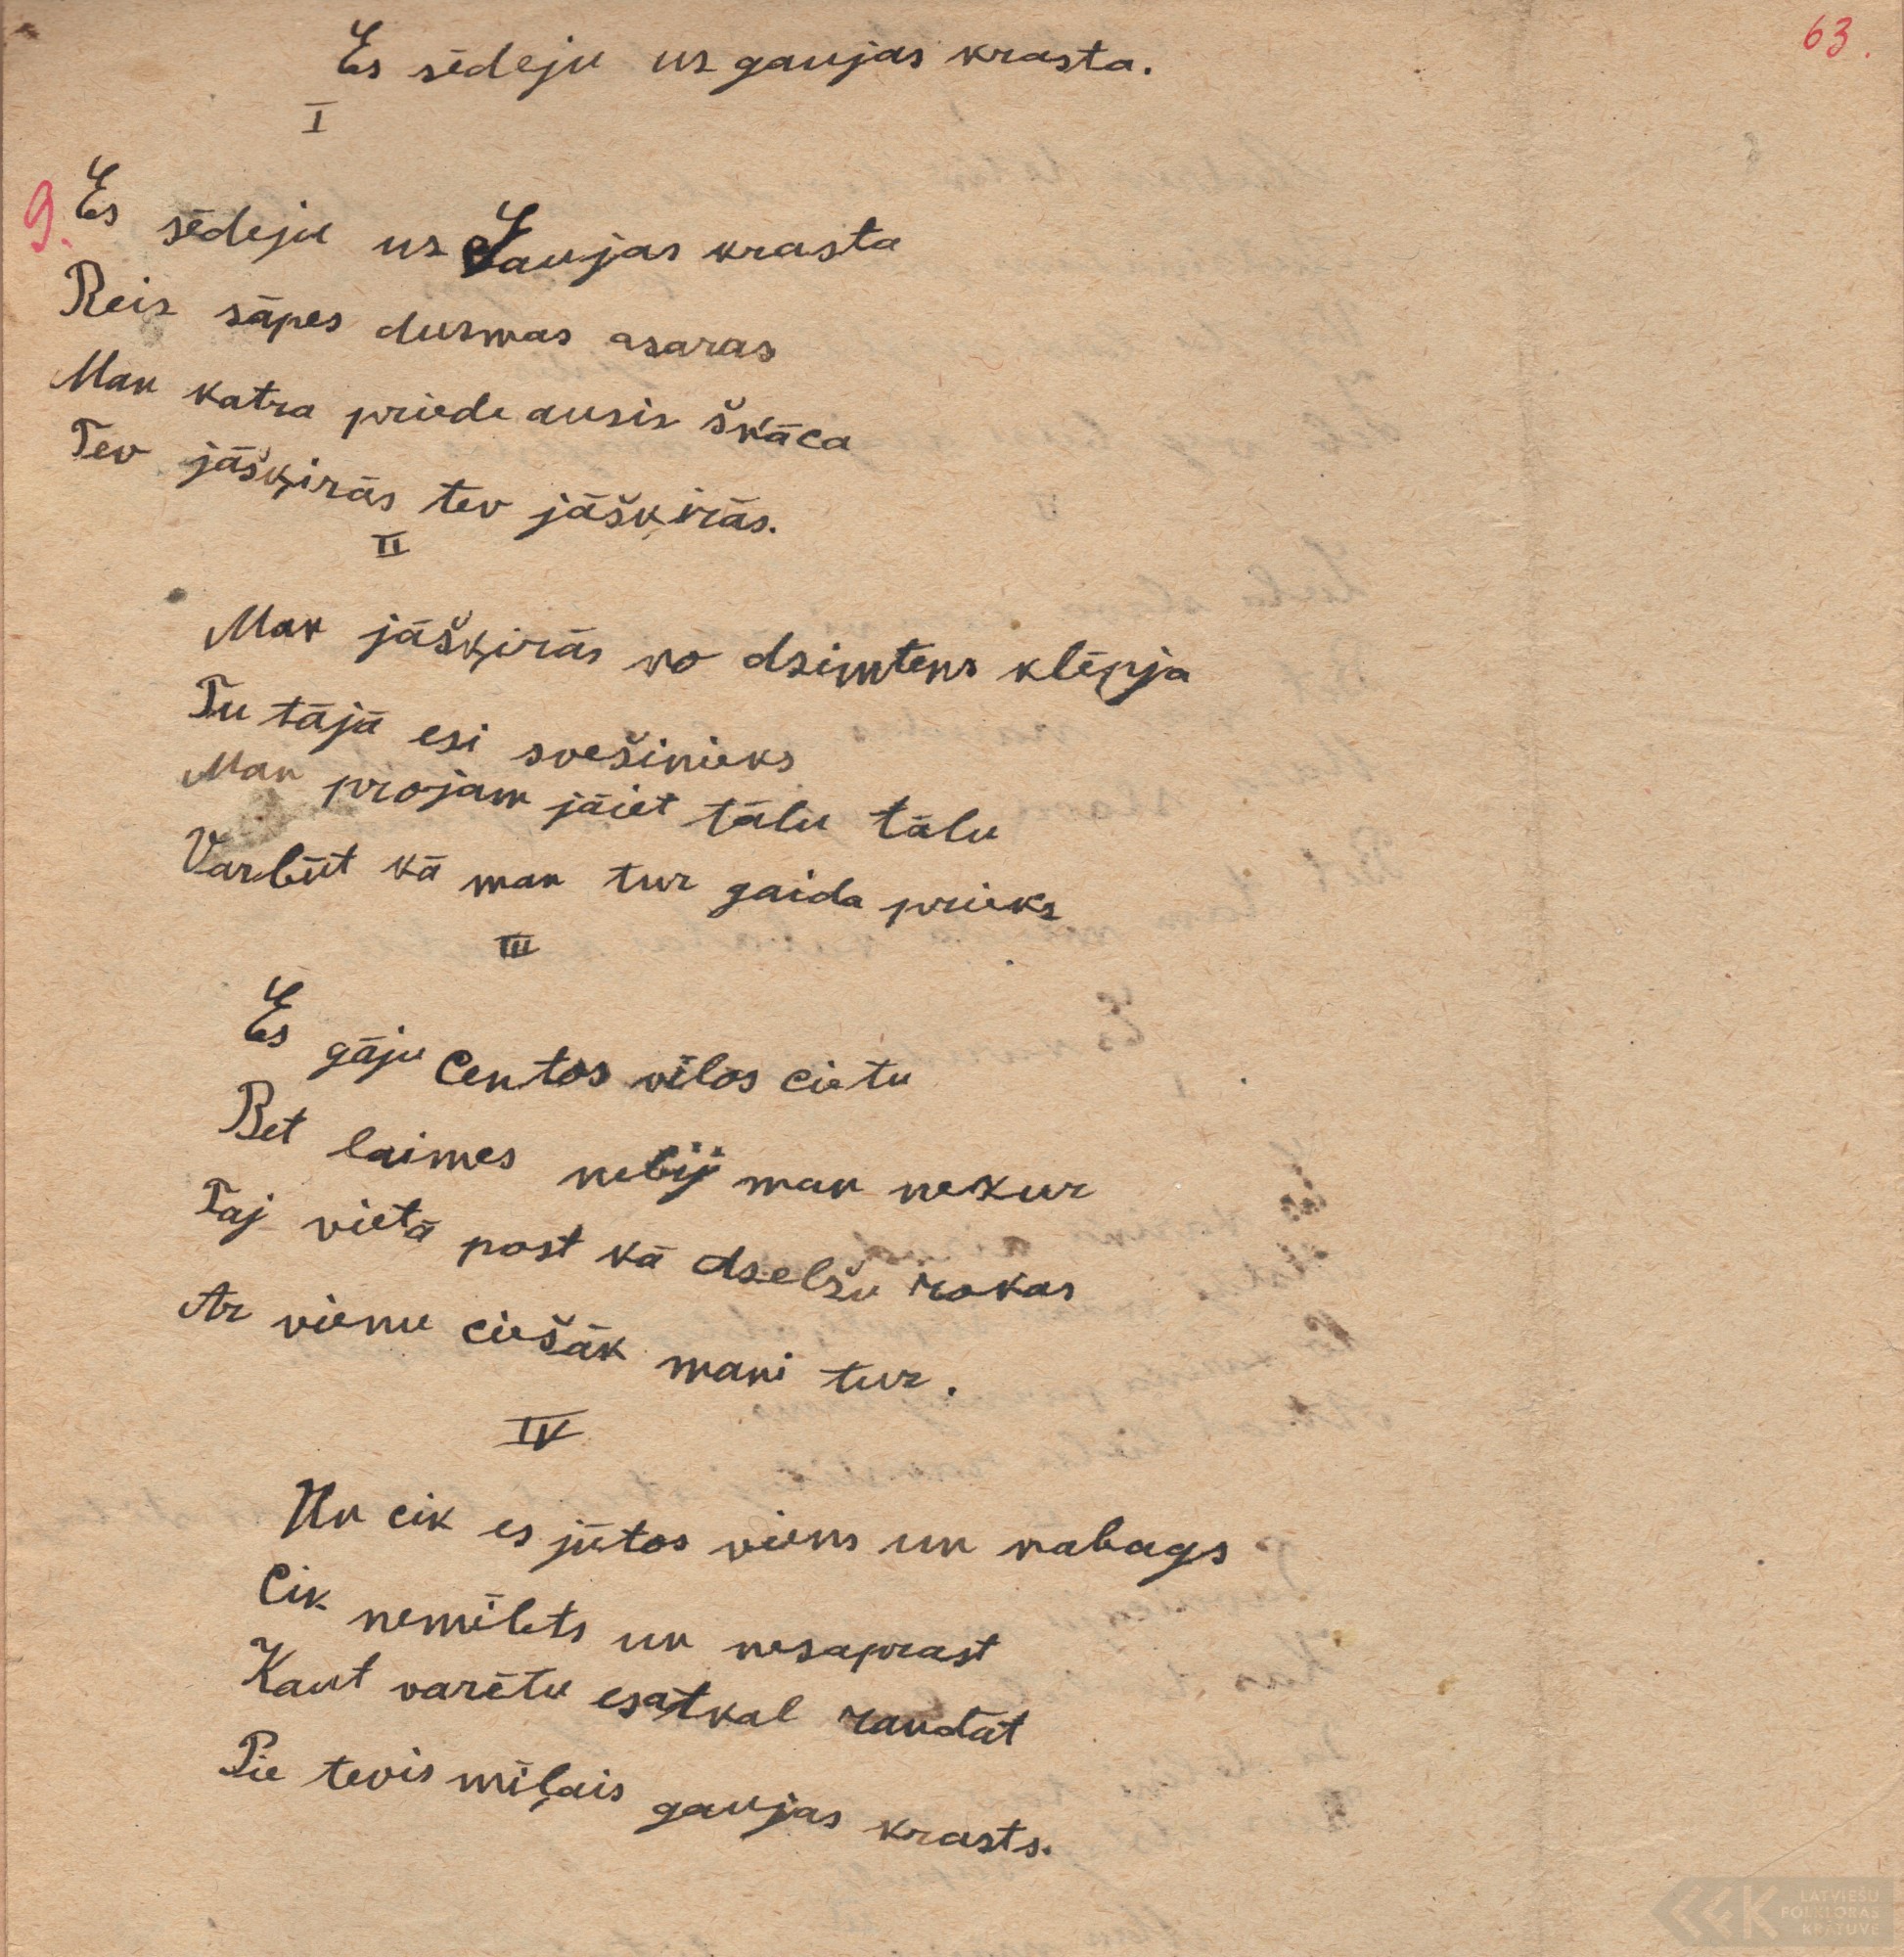 63.
Es sēdeju uz gaujas krasta.
I
9. Es sēdeju uz Gaujas krasta
Reiz sāpes dusmas asaras
Man katra priede ausis škāca
Tev jāšķirās tev jāšķirās.
II
Man jāšķirās no dzimtens klēpja
Tu tājā esi svešinieks
Man projam jāiet tālu tālu
Varbūt kā man tur gaida prieks
III
Es gāju Centos vīlos cietu
Bet laimes nebij man nekur
Taj vietā post kā dzelžu rokas
Ar vienu ciešāk mani tur.
IV
Un cik es jūtos viens un nabags
Cik nemīlets un nesaprast
Kaut varētu es atkal raudāt
Pie tevis mīļais gaujas krasts.
LATVIEŠU
FOLKLORAS
KRĀTUVE